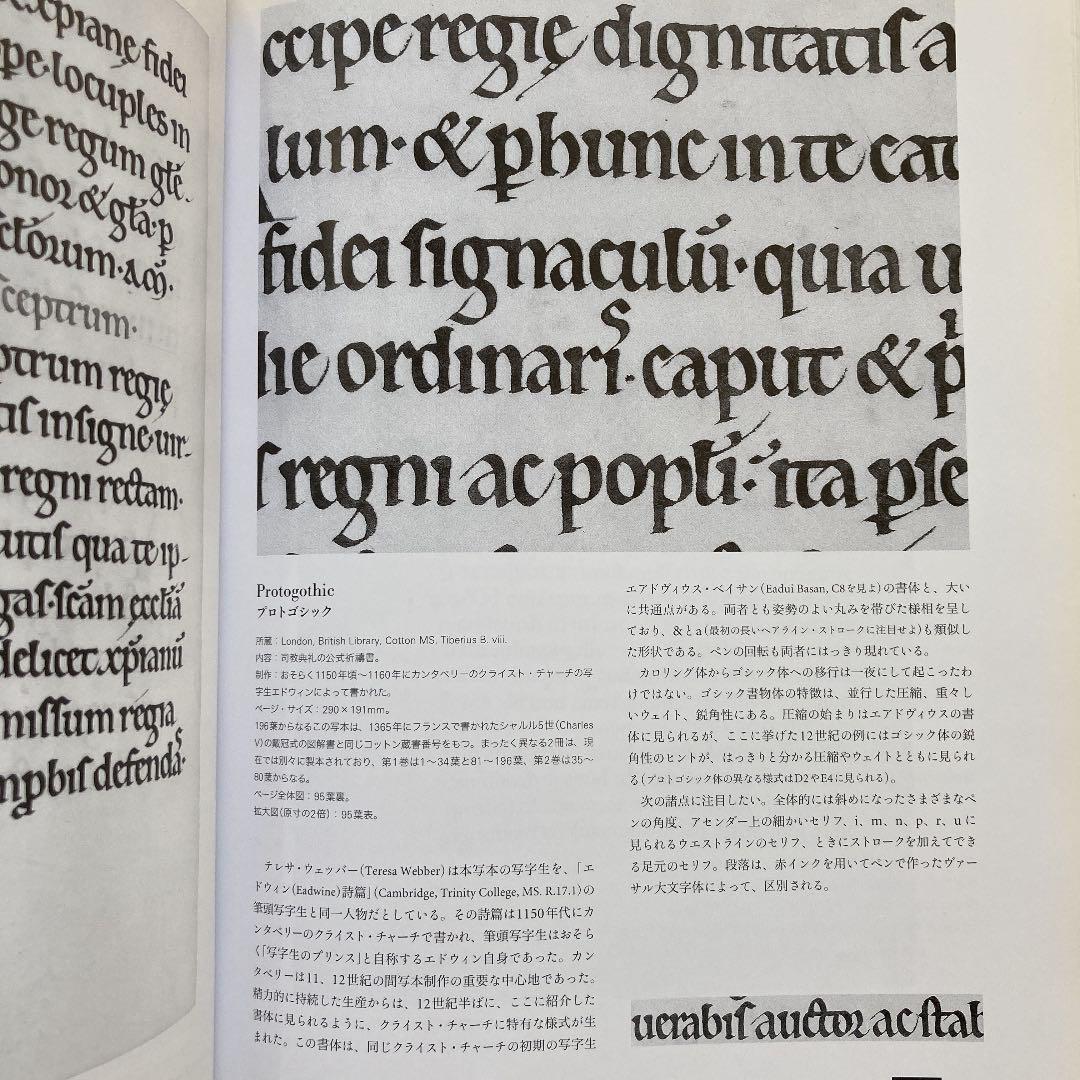 xpianę fidei
pe·locuples in
ge regum gl̄e·
onoꝛ & gl̄a·ꝑ
ctoꝛum·
ceptrum·
ptrum regię
tiſ inſigne·uir-
regni rectam·
utiſ qua te ip-
gaſ·ſcām ęccliā
delicet xp̄ianū
miſſum regia
defenda
ccipe regię dignitatiſ a
lum· & ꝑhunc in te cat
fidei ſignaculū· quia u
lie ordinariˢ· caput & pⁱ
ſ regni ac popłi· ita ꝑſe
Protogothic
プロトゴシック
所蔵：London, British Library, Cotton MS. Tiberius B. viii.
内容：司教典礼の公式祈禱書。
制作：おそらく1150年頃〜1160年にカンタベリーのクライスト・チャーチの写
字生エドウィンによって書かれた。
ページ・サイズ：290×191mm。
196葉からなるこの写本は、1365年にフランスで書かれたシャルル5世（Charles
V）の戴冠式の図解書と同じコットン蔵書番号をもつ。まったく異なる2冊は、現
在では別々に製本されており、第1巻は1〜34葉と81〜196葉、第2巻は35〜
80葉からなる。
ページ全体図：95葉裏。
拡大図（原寸の2倍）：95葉表。
テレサ・ウェッバー（Teresa Webber）は本写本の写字生を、「エ
ドウィン（Eadwine）詩篇」（Cambridge, Trinity College, MS. R.17.1）の
筆頭写字生と同一人物だとしている。その詩篇は1150年代にカ
ンタベリーのクライスト・チャーチで書かれ、筆頭写字生はおそら
く「写字生のプリンス」と自称するエドウィン自身であった。カン
タベリーは11、12世紀の間写本制作の重要な中心地であった。
精力的に持続した生産からは、12世紀半ばに、ここに紹介した
書体に見られるように、クライスト・チャーチに特有な様式が生
まれた。この書体は、同じクライスト・チャーチの初期の写字生
エアドヴィウス・ベイサン（Eadui Basan, C8を見よ）の書体と、大い
に共通点がある。両者とも姿勢のよい丸みを帯びた様相を呈し
ており、&とa（最初の長いヘアライン・ストロークに注目せよ）も類似し
た形状である。ペンの回転も両者にはっきり現れている。
カロリング体からゴシック体への移行は一夜にして起こったわ
けではない。ゴシック書物体の特徴は、並行した圧縮、重々し
いウェイト、鋭角性にある。圧縮の始まりはエアドヴィウスの書
体に見られるが、ここに挙げた12世紀の例にはゴシック体の鋭
角性のヒントが、はっきりと分かる圧縮やウェイトとともに見られ
る（プロトゴシック体の異なる様式はD2やE4に見られる）。
次の諸点に注目したい。全体的には斜めになったさまざまなペ
ンの角度、アセンダー上の細かいセリフ、i、m、n、p、r、uに
見られるウエストラインのセリフ、ときにストロークを加えてでき
る足元のセリフ。段落は、赤インクを用いてペンで作ったヴァー
サル大文字体によって、区別される。
uerabiſ auctoꝛ ac ſtab